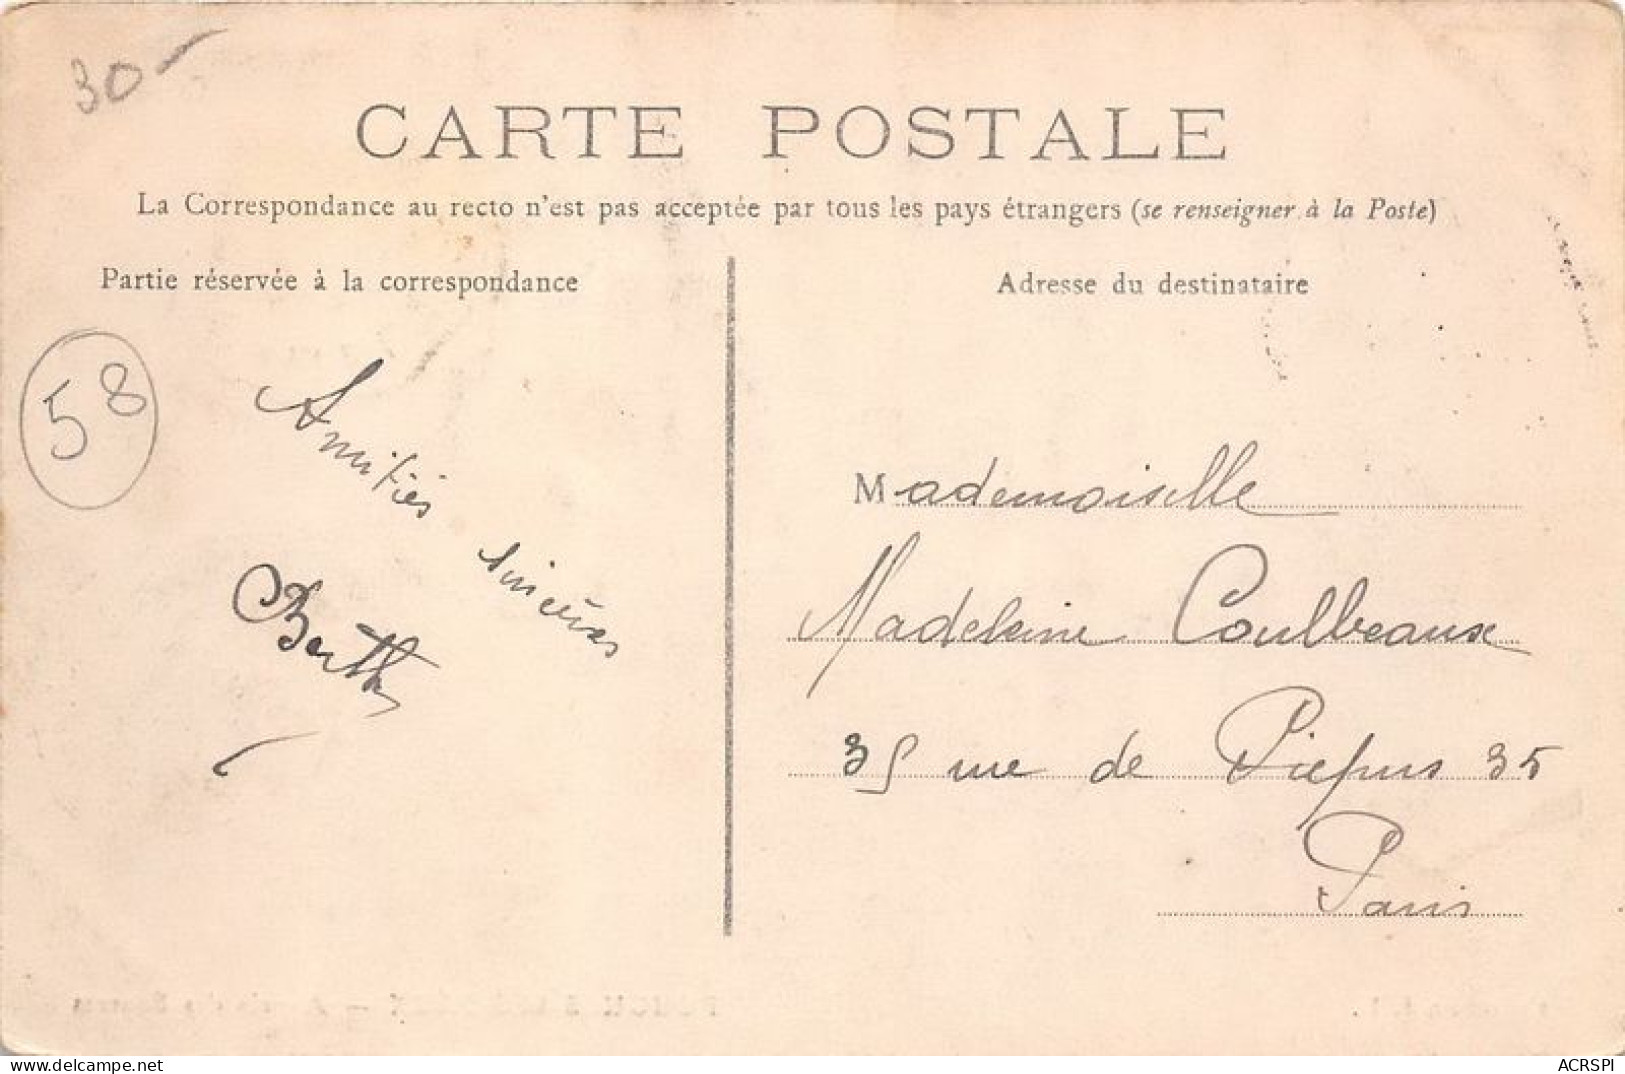 30
CARTE POSTALE
La Correspondance au recto n'est pas acceptée par tous les pays étrangers (se renseigner à la Poste)
Partie réservée à la correspondance
58
Amitiés sincères
Berthe
Adresse du destinataire
Mademoiselle
Madeleine Coulbeaux
35 rue de Picpus 35
Paris
ACRSPI